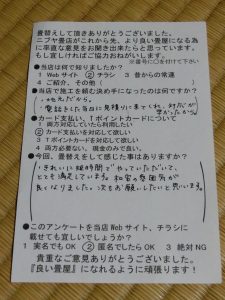 畳替えして頂きありがとうございました。
ニブヤ畳店がこれから先、より良い畳屋になる為
に率直な意見をお聞き出来たらと思っています。
もし宜しければご協力おねがいします。
※番号に○を付けて下さい
●当店は何で知りましたか?
1 Web サイト ② チラシ 3 昔からの常連
4 ご紹介、その他( )
●当店で施工を頼む決め手になったのは何ですか?
・地元だから。
・電話をした当日に見積りに来てくれ、対応が
早かったから。
●カード支払い、Tポイントカードについて
1 両方対応していたら利用したい
② カード支払いを対応して欲しい
3 Tポイントカードを対応して欲しい
4 両方必要ない。現金のみで良い
●今回、畳替えをして感じた事はありますか?
きれいに短時間でやっていただいて、
とても満足しています。和室の雰囲気が
良くなりました。次もお願いしたいと思います。
●このアンケートを当店 Web サイト、チラシに
載せても宜しいでしょうか?
1 実名でも OK ② 匿名でたら OK 3 絶対 NG
貴重なご意見ありがとうございました。
『良い畳屋』になれるように頑張ります!